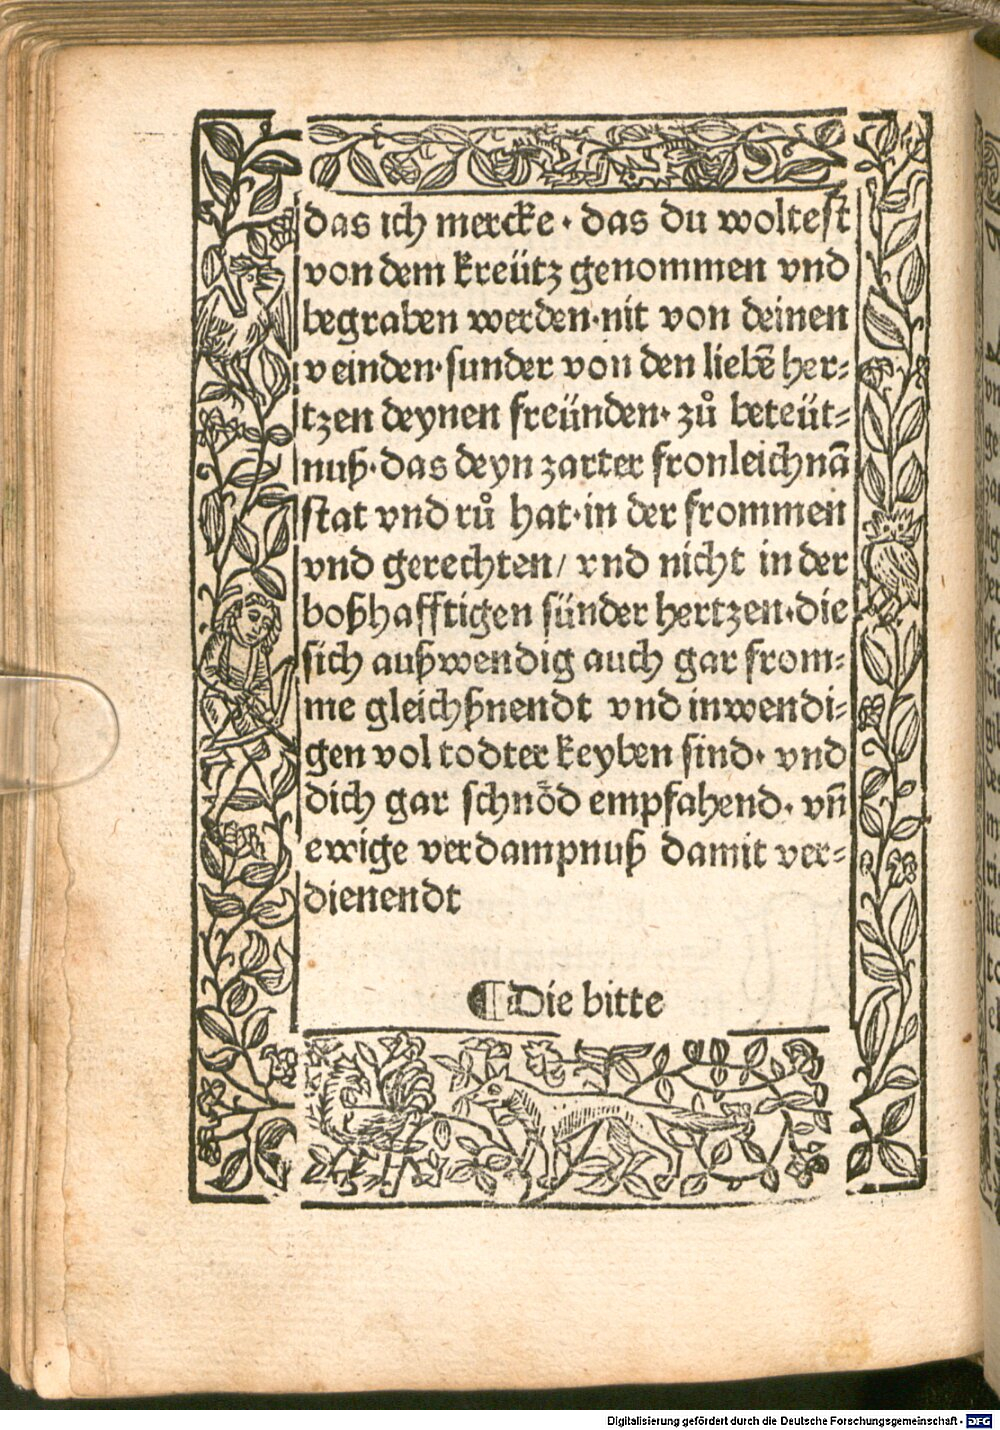 das ich mercke · das du woltest
von dem kreütz genommen vnd
begraben werden·nit von deinen
veinden·sunder von den liebē her⸗
tzen deynen freünden· zů beteüt⸗
nuß·das deyn zarter fronleichnā
stat vnd rů hat·in der frommen
vnd gerechten/ vnd nicht in der
boßhafftigen sünder hertzen·die
sich außwendig auch gar from⸗
me gleichßnendt vnd inwendi⸗
gen vol todter keyben sind· vnd
dich gar schnöd empfahend· vñ
ewige verdampnuß damit ver⸗
dienendt
¶Die bitte
Digitalisierung gefördert durch die Deutsche Forschungsgemeinschaft - DFG